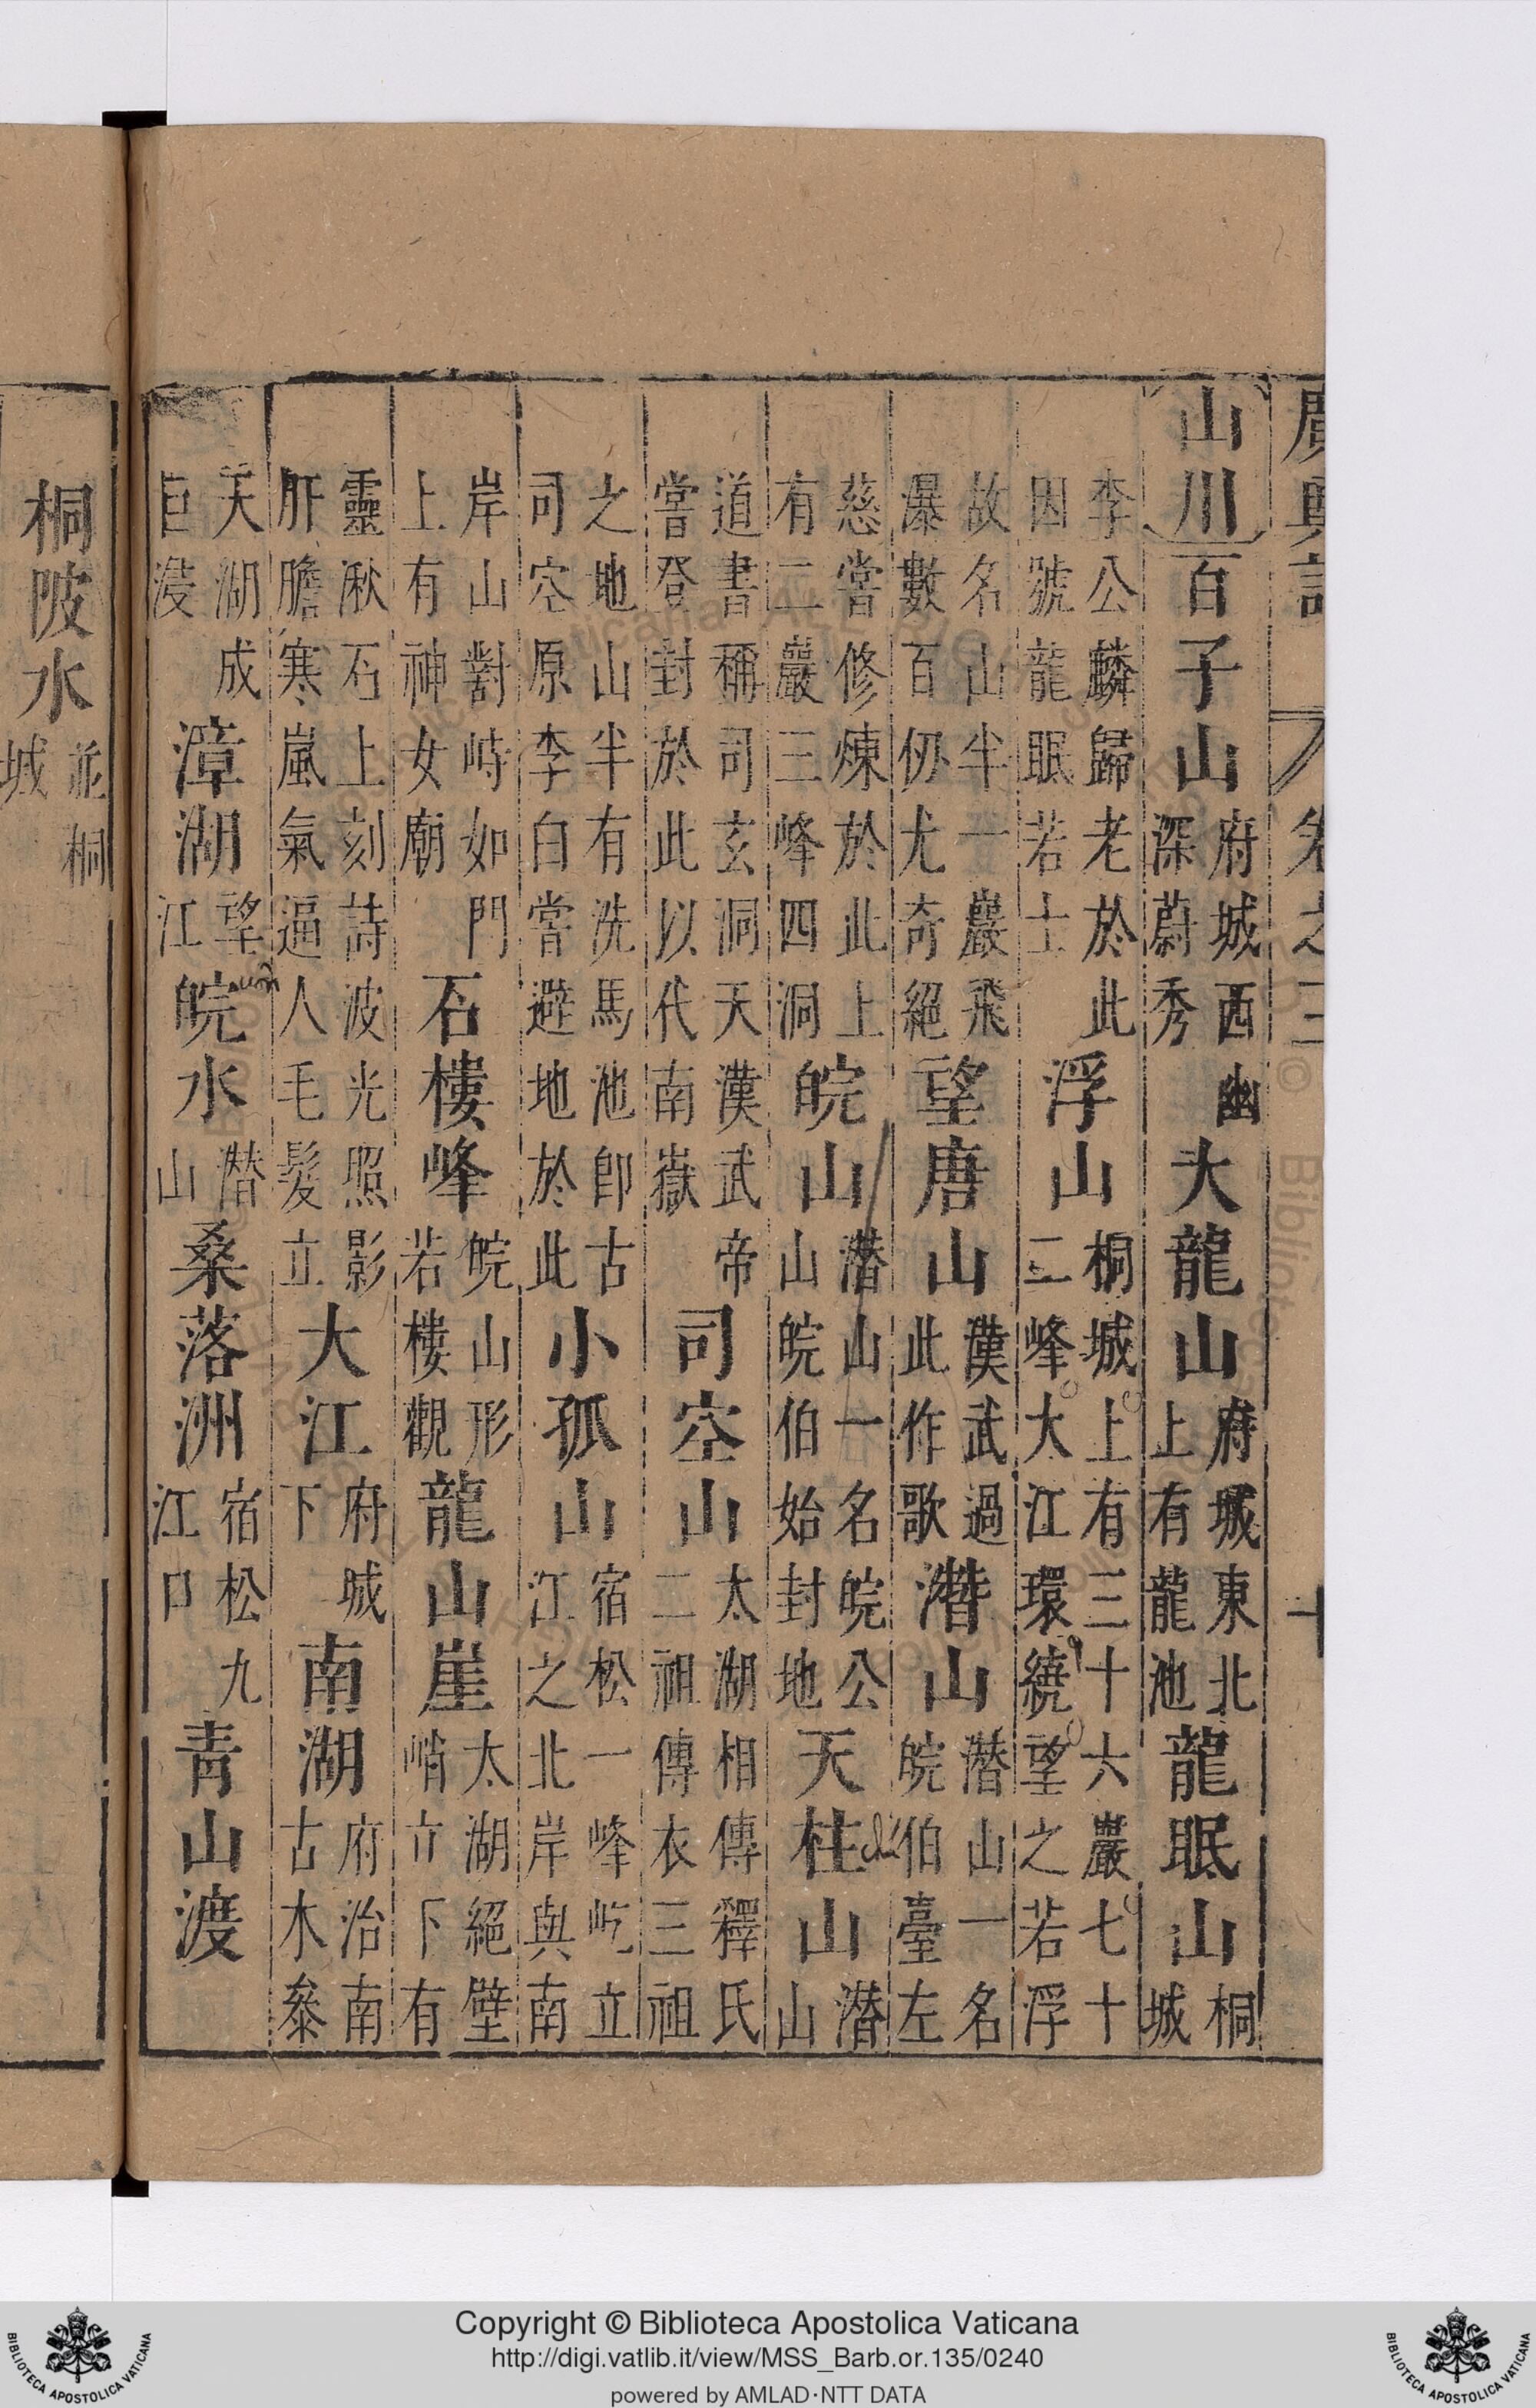 廣輿記 卷之三 十
山川百子山府城西幽深蔚秀大龍山府城東北上有龍池龍眠山桐城
李公麟歸老於此因號龍眠若士浮山桐城上有三十六巖七十二峰大江環繞望之若浮
故名山半一巖飛瀑數百仞尤奇絕望唐山漢武過此作歌潛山潛山一名皖伯臺左
慈嘗修煉於此上有二巖三峰四洞皖山潛山一名皖公山皖伯始封地天柱山潛山
道書稱司玄洞天漢武帝嘗登封於此以代南嶽司空山太湖相傳釋氏二祖傳衣三祖
之地山半有洗馬池即古司空原李白嘗避地於此小孤山宿松一峰屹立江之北岸與南
岸山對峙如門上有神女廟石樓峰皖山形若樓觀龍山崖太湖絕壁峭立下有
靈湫石上刻詩波光照影肝膽寒嵐氣逼人毛髮立大江府城下南湖府治南古木叅
天湖成巨浸漳湖望江皖水潛山桑落洲宿松九江口青山渡
桐陂水並桐城
Copyright © Biblioteca Apostolica Vaticana
http://digi.vatlib.it/view/MSS_Barb.or.135/0240
powered by AMLAD·NTT DATA
BIBLIOTECA APOSTOLICA VATICANA
BIBLIOTECA APOSTOLICA VATICANA